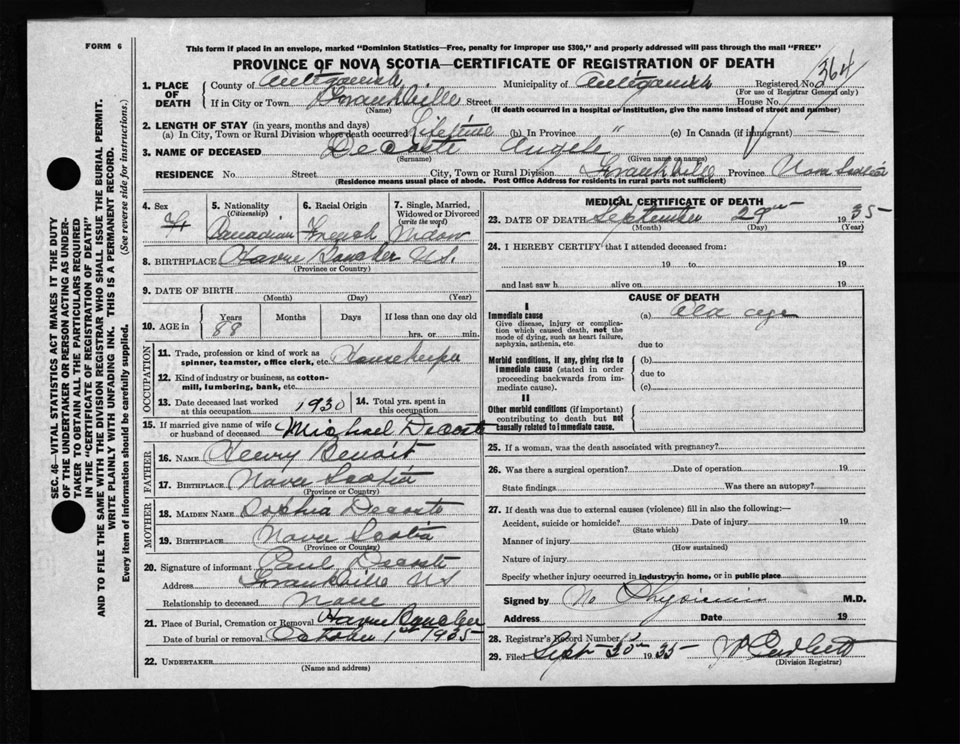 FORM 6
This form if placed in an envelope, marked "Dominion Statistics—Free, penalty for improper use $300," and properly addressed will pass through the mail "FREE"
PROVINCE OF NOVA SCOTIA—CERTIFICATE OF REGISTRATION OF DEATH
1. PLACE OF DEATH
County of Antigonish Municipality of Antigonish Registered No. 364
(For use of Registrar General only)
If in City or Town Frankville Street House No.
(Name) (If death occurred in a hospital or institution, give the name instead of street and number)
2. LENGTH OF STAY (in years, months and days)
(a) In City, Town or Rural Division where death occurred Lifetime (b). In Province " (c) In Canada (if immigrant) —
3. NAME OF DECEASED DeCoste Angele
(Surname) (Given name or names)
RESIDENCE No. Street City, Town or Rural Division Frankville Province Nova Scotia
(Residence means usual place of abode. Post Office Address for residents in rural parts not sufficient)
4. Sex
F
5. Nationality
(Citizenship)
Canadian
6. Racial Origin
French
7. Single, Married, Widowed or Divorced
(write the word)
Widow
8. BIRTHPLACE Havre Boucher N.S.
(Province or Country)
9. DATE OF BIRTH
(Month) (Day) (Year)
10. AGE in
Years Months Days If less than one day old
88
hrs. or min.
OCCUPATION
11. Trade, profession or kind of work as spinner, teamster, office clerk, etc. Housekeeper
12. Kind of industry or business, as cotton-mill, lumbering, bank, etc.
13. Date deceased last worked at this occupation 1930
14. Total yrs. spent in this occupation
15. If married give name of wife or husband of deceased Michael Decoste
FATHER
16. NAME Henry Benoit
17. BIRTHPLACE Nova Scotia
(Province or Country)
MOTHER
18. MAIDEN NAME Sophia Decoste
19. BIRTHPLACE Nova Scotia
(Province or Country)
20. Signature of informant Paul Decoste
Address Frankville NS
Relationship to deceased None
21. Place of Burial, Cremation or Removal Havre Boucher
Date of burial or removal October 1st 1935
22. UNDERTAKER
(Name and address)
MEDICAL CERTIFICATE OF DEATH
23. DATE OF DEATH September 29th 1935
(Month) (Day) (Year)
24. I HEREBY CERTIFY that I attended deceased from:
19 to 19
and last saw h alive on 19
CAUSE OF DEATH
I
Immediate cause
Give disease, injury or complication which caused death, not the mode of dying, such as heart failure, asphyxia, asthenia, etc.
(a) Old age
due to
Morbid conditions, if any, giving rise to immediate cause (stated in order proceeding backwards from immediate cause).
(b)
due to
(c)
II
Other morbid conditions (if important) contributing to death but not causally related to immediate cause.
25. If a woman, was the death associated with pregnancy?
26. Was there a surgical operation? Date of operation 19
State findings Was there an autopsy?
27. If death was due to external causes (violence) fill in also the following:—
Accident, suicide or homicide? Date of injury 19
(State which)
Manner of injury
(How sustained)
Nature of injury
Specify whether injury occurred in industry, in home, or in public place
Signed by No Physician M.D.
Address Date 19
28. Registrar's Record Number
29. Filed Sept 30th 1935
(Division Registrar)
SEC. 46—VITAL STATISTICS ACT MAKES IT THE DUTY
OF THE UNDERTAKER OR PERSON ACTING AS UNDER-
TAKER TO OBTAIN ALL THE PARTICULARS REQUIRED
IN THE "CERTIFICATE OF REGISTRATION OF DEATH"
AND TO FILE THE SAME WITH THE DIVISION REGISTRAR WHO SHALL ISSUE THE BURIAL PERMIT.
WRITE PLAINLY WITH UNFADING INK. THIS IS A PERMANENT RECORD.
Every item of information should be carefully supplied. (See reverse side for instructions.)